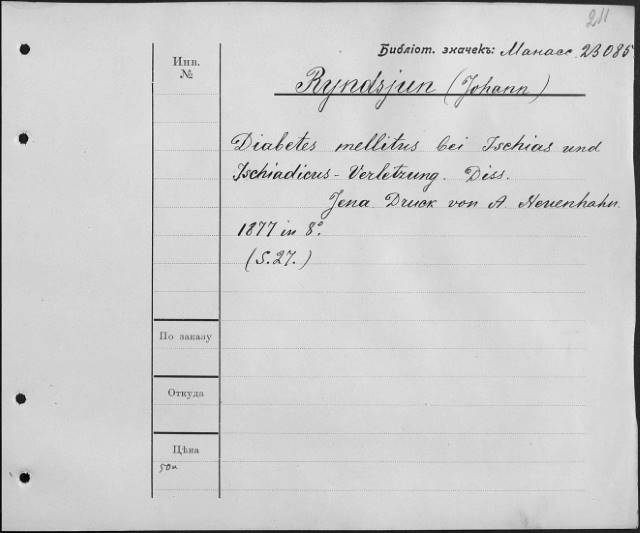 211
Библіот. значекъ: Манасс. 23085
Инв.
№
Ryndsjun (Johann)
Diabetes mellitus bei Ischias und
Ischiadicus-Verletzung. Diss.
Jena Druck von A. Neuenhahn.
1877 in 8º.
(S.27.)
По заказу
Откуда
Цѣна
50к